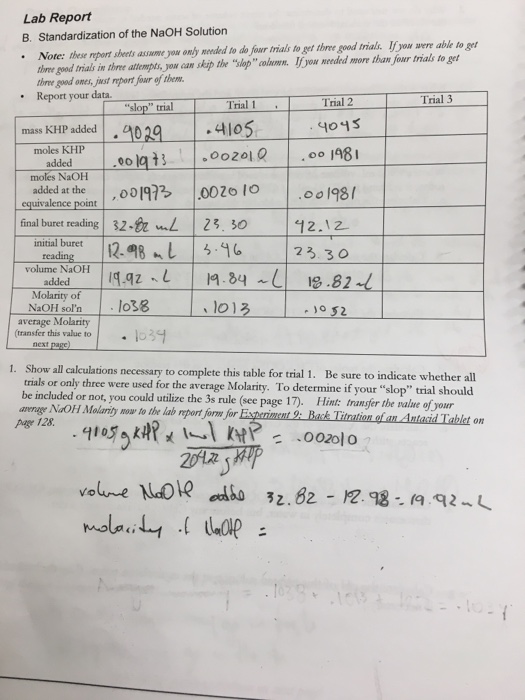 Lab Report
B. Standardization of the NaOH Solution
• Note: these report sheets assume you only needed to do four trials to get three good trials. If you were able to get
three good trials in three attempts, you can skip the "slop" column. If you needed more than four trials to get
three good ones, just report four of them.
• Report your data.
"slop" trial Trial 1 Trial 2 Trial 3
mass KHP added .4029 .4105 .4045
moles KHP added .001973 .002010 .001981
moles NaOH added at the equivalence point .001973 .002010 .001981
final buret reading 32.82 mL 23.30 42.12
initial buret reading 12.98 mL 3.46 23.30
volume NaOH added 19.92 mL 19.84 mL 18.82 mL
Molarity of NaOH sol'n .1038 .1013 .1052
average Molarity (transfer this value to next page) .1034
1. Show all calculations necessary to complete this table for trial 1. Be sure to indicate whether all
trials or only three were used for the average Molarity. To determine if your "slop" trial should
be included or not, you could utilize the 3s rule (see page 17). Hint: transfer the value of your
average NaOH Molarity now to the lab report form for Experiment 9: Back Titration of an Antacid Tablet on
page 128.
.4105g KHP x 1mol KHP = .002010
204.22 g KHP
volume NaOH added 32.82 - 12.98 = 19.92 mL
molarity of NaOH =